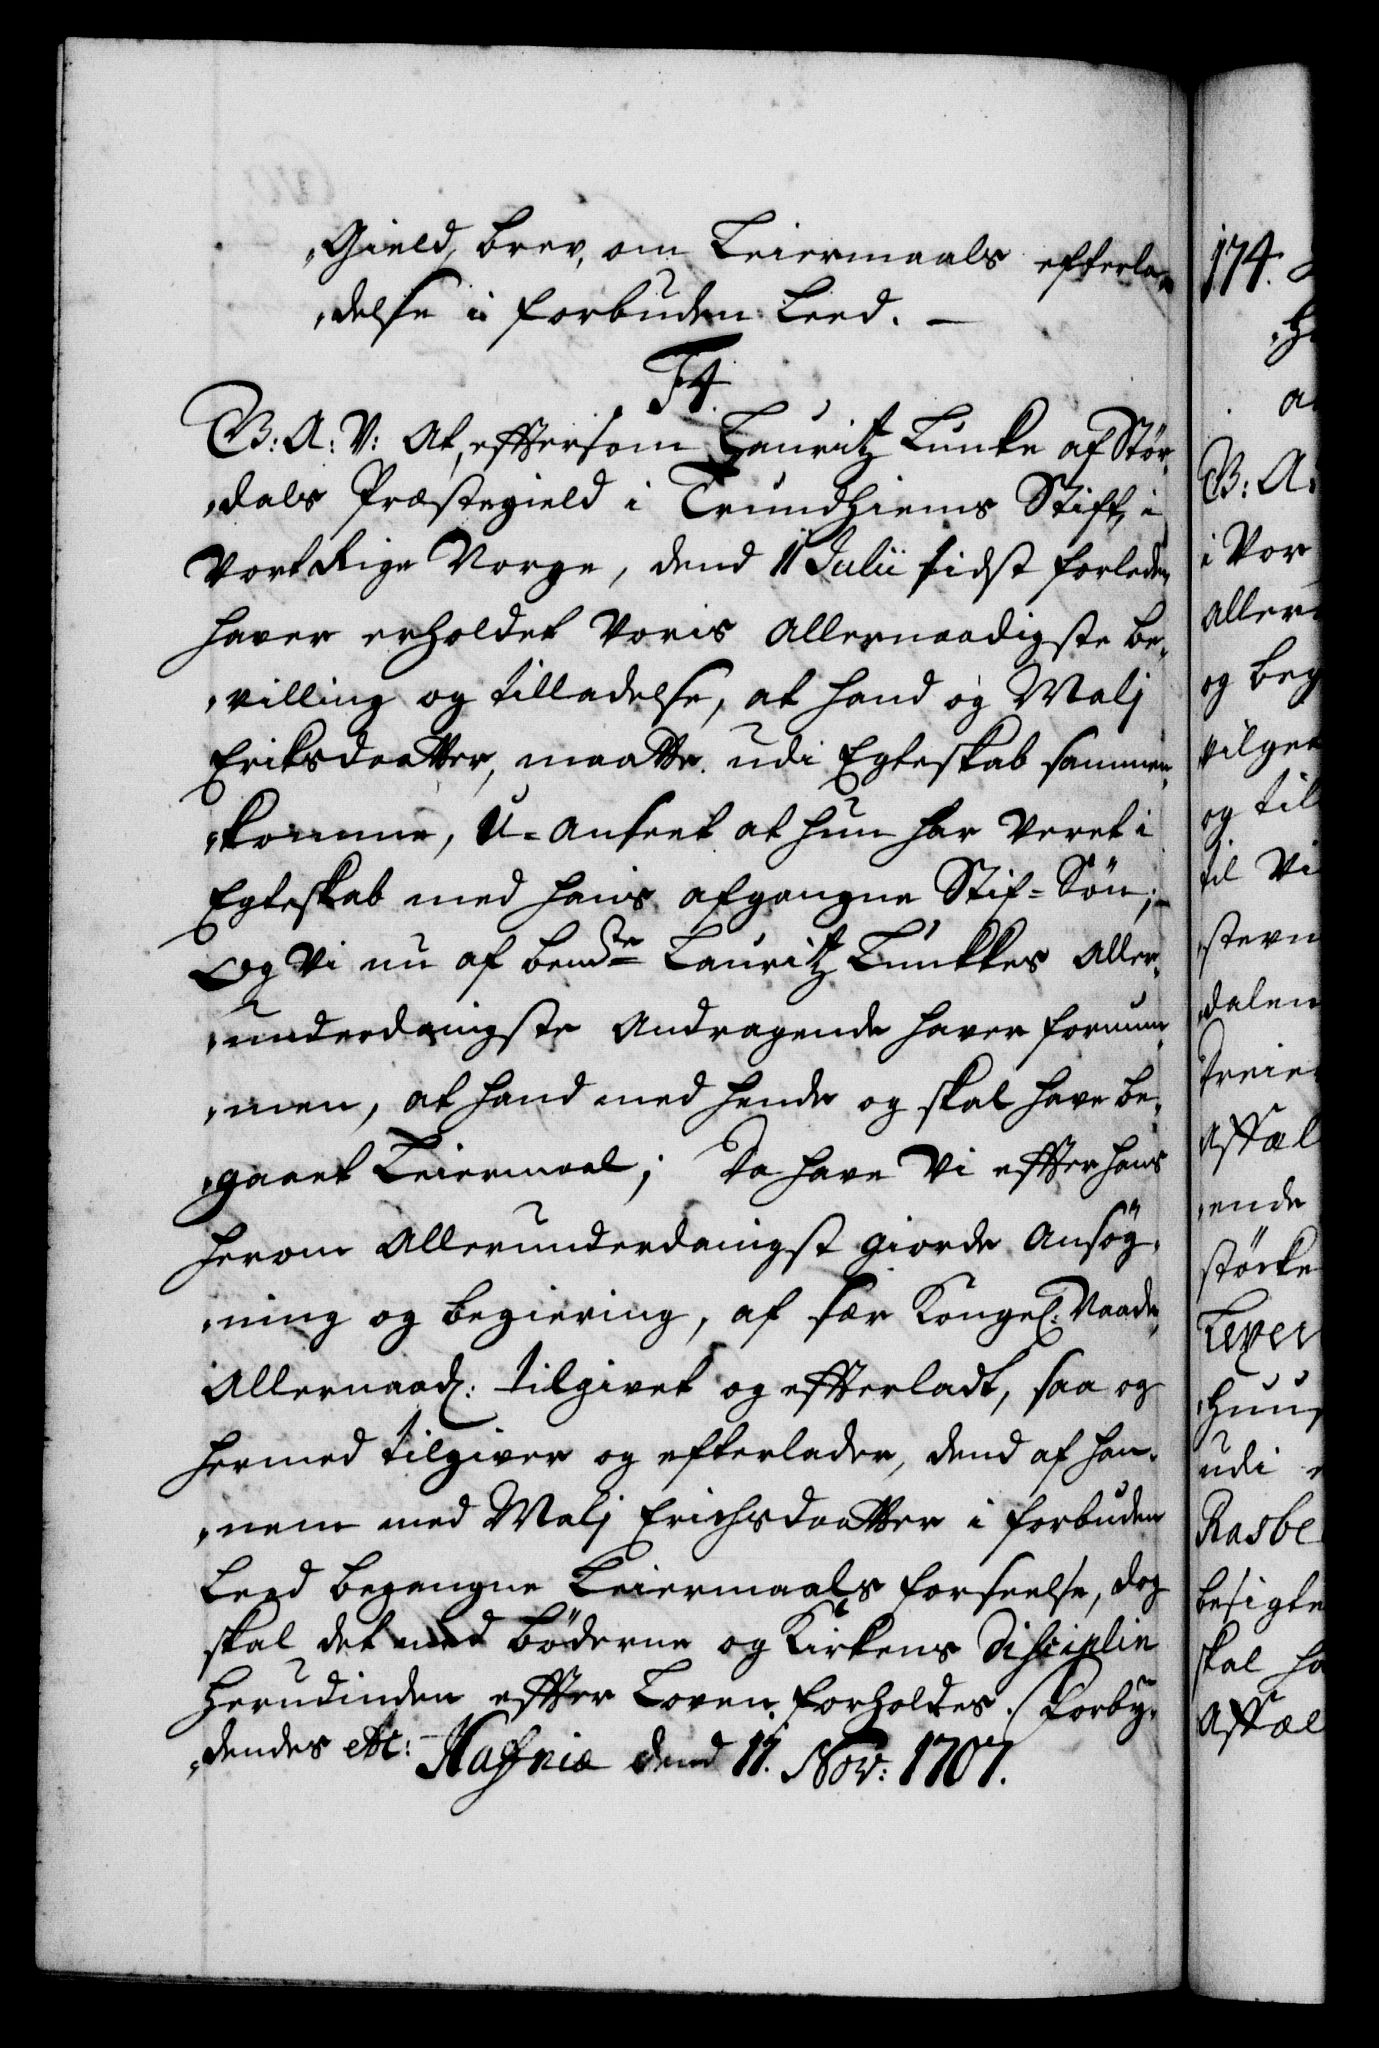 „Gield, brev, om Leiermaals efterla„
„delse i forbuden Leed. —
F4.
B: A: V: At, efftersom Lauritz Lunke af Stør„
„dals Præstegield i Trundhiems Stift, i
Vort Rige Norge, dend 11 Julii sidst forleden
haver erholdet Voris Allernaadigste be„
„villing og tilladelse, at hand og Malj
Eriksdaatter, maatte udi Egteskab sammen„
„komme, U-anseet at hun har veret i
Egteskab med hans afgangne Stif-Søn;
Og Vi nu af bemte Lauritz Lunkkes Aller„
„underdanigste Andragende haver fornum„
„men, at hand med hende og skal have be„
„gaaet Leiermaal; Da have Vi effter hans
herom Allerunderdanigst giorde Ansøg„
„ning og begiering, af sær Kongel: Naade,
Allernaad: tilgivet og effterladt, saa og
hermed tilgiver og efterlader, dend af han„
„nem med Malj Erichsdaatter i forbuden
Leed begangne Leiermaals forseelse, dog
skal det med bøderne og Kirkens Disciplin
herudinden effter Loven forholdes. Forby„
„dendes etc: Hafniæ dend 11. Nov: 1707.
174.
B: A:
i Vor
Aller
og beg
og til
til Vi
stevn
„dalen
„ende
størke
udi
Rasbe
besigte
skal ha